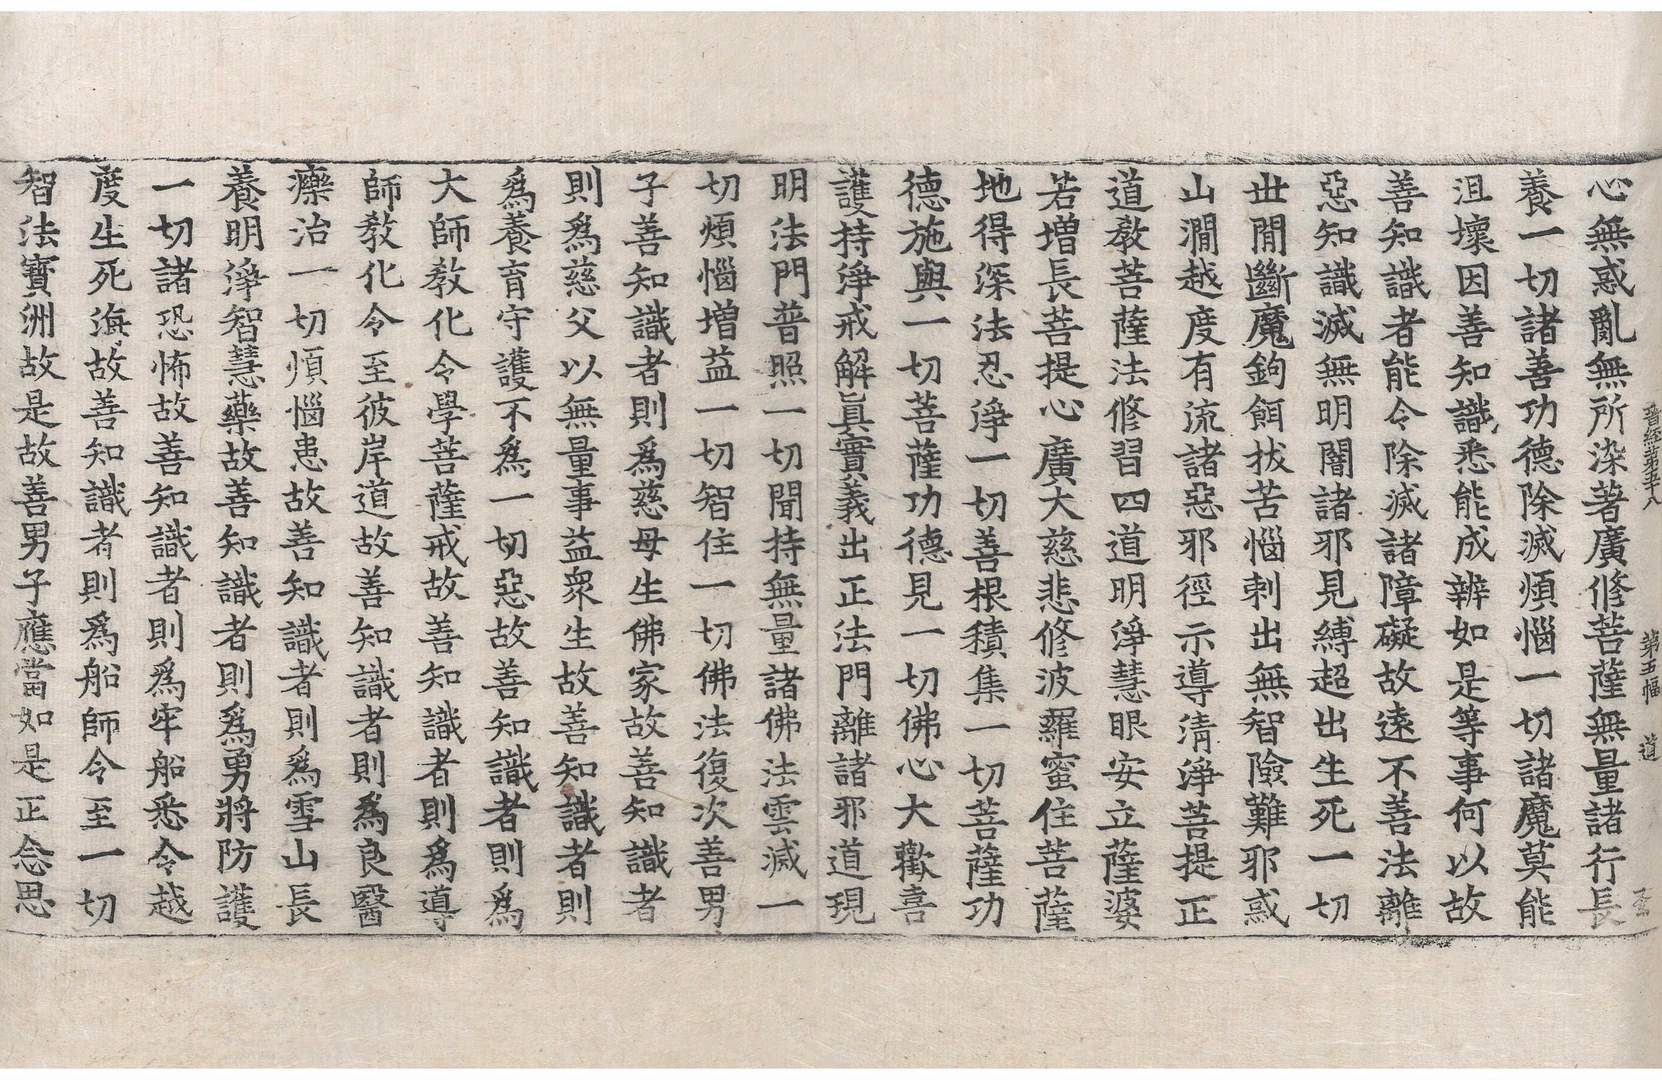 晉經第五十八　第五幅　道
心無惑亂無所染著廣修菩薩無量諸行長
養一切諸善功德除滅煩惱一切諸魔莫能
沮壞因善知識悉能成辨如是等事何以故
善知識者能令除滅諸障礙故遠不善法離
惡知識滅無明闇諸邪見縛超出生死一切
世閒斷魔鉤餌拔苦惱刺出無智險難邪惑
山澗越度有流諸惡邪徑示導清淨菩提正
道教菩薩法修習四道明淨慧眼安立薩婆
若增長菩提心廣大慈悲修波羅蜜住菩薩
地得深法忍淨一切善根積集一切菩薩功
德施與一切菩薩功德見一切佛心大歡喜
護持淨戒解眞實義出正法門離諸邪道現
明法門普照一切聞持無量諸佛法雲滅一
切煩惱增益一切智住一切佛法復次善男
子善知識者則爲慈母生佛家故善知識者
則爲慈父以無量事益衆生故善知識者則
爲養育守護不爲一切惡故善知識者則爲
大師教化令學菩薩戒故善知識者則爲導
師教化令至彼岸道故善知識者則爲良醫
療治一切煩惱患故善知識者則爲雪山長
養明淨智慧藥故善知識者則爲勇將防護
一切諸恐怖故善知識者則爲牢船悉令越
度生死海故善知識者則爲船師令至一切
智法寶洲故是故善男子應當如是正念思